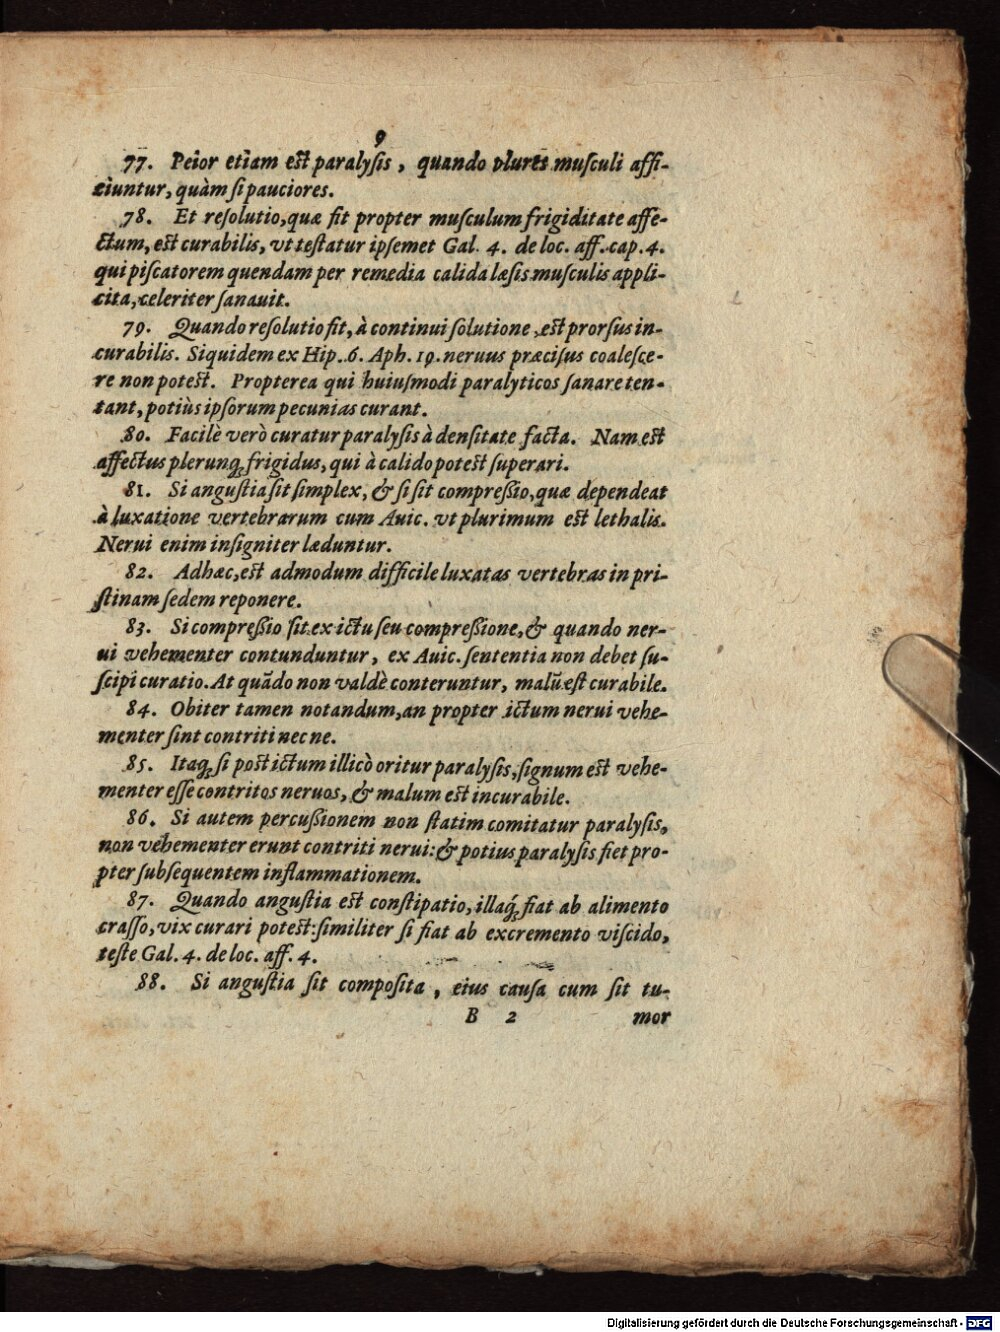 9
77. Peior etiam est paralysis, quando plures musculi affi-
ciuntur, quàm si pauciores.
78. Et resolutio, quæ fit propter musculum frigiditate affe-
ctum, est curabilis, vt testatur ipsemet Gal. 4. de loc. aff. cap. 4.
qui piscatorem quendam per remedia calida læsis musculis appli-
cita, celeriter sanauit.
79. Quando resolutio fit, à continui solutione, est prorsus in-
curabilis. Siquidem ex Hip. 6. Aph. 19. neruus præcisus coalesce-
re non potest. Propterea qui huiusmodi paralyticos sanare ten-
tant, potiùs ipsorum pecunias curant.
80. Facilè verò curatur paralysis à densitate facta. Nam est
affectus plerunq; frigidus, qui à calido potest superari.
81. Si angustia sit simplex, & si sit compreßio, quæ dependeat
à luxatione vertebrarum cum Auic. vt plurimum est lethalis.
Nerui enim insigniter læduntur.
82. Adhæc, est admodum difficile luxatas vertebras in pri-
stinam sedem reponere.
83. Si compreßio sit ex ictu seu compreßione, & quando ner-
ui vehementer contunduntur, ex Auic. sententia non debet su-
scipi curatio. At quādo non valdè conteruntur, malū est curabile.
84. Obiter tamen notandum, an propter ictum nerui vehe-
menter sint contriti nec ne.
85. Itaq; si post ictum illicò oritur paralysis, signum est vehe-
menter esse contritos neruos, & malum est incurabile.
86. Si autem percußionem non statim comitatur paralysis,
non vehementer erunt contriti nerui: & potius paralysis fiet pro-
pter subsequentem inflammationem.
87. Quando angustia est constipatio, illaq́; fiat ab alimento
crasso, vix curari potest: similiter si fiat ab excremento viscido,
teste Gal. 4. de loc. aff. 4.
88. Si angustia sit composita, eius causa cum sit tu-
B 2 mor
Digitalisierung gefördert durch die Deutsche Forschungsgemeinschaft - DFG